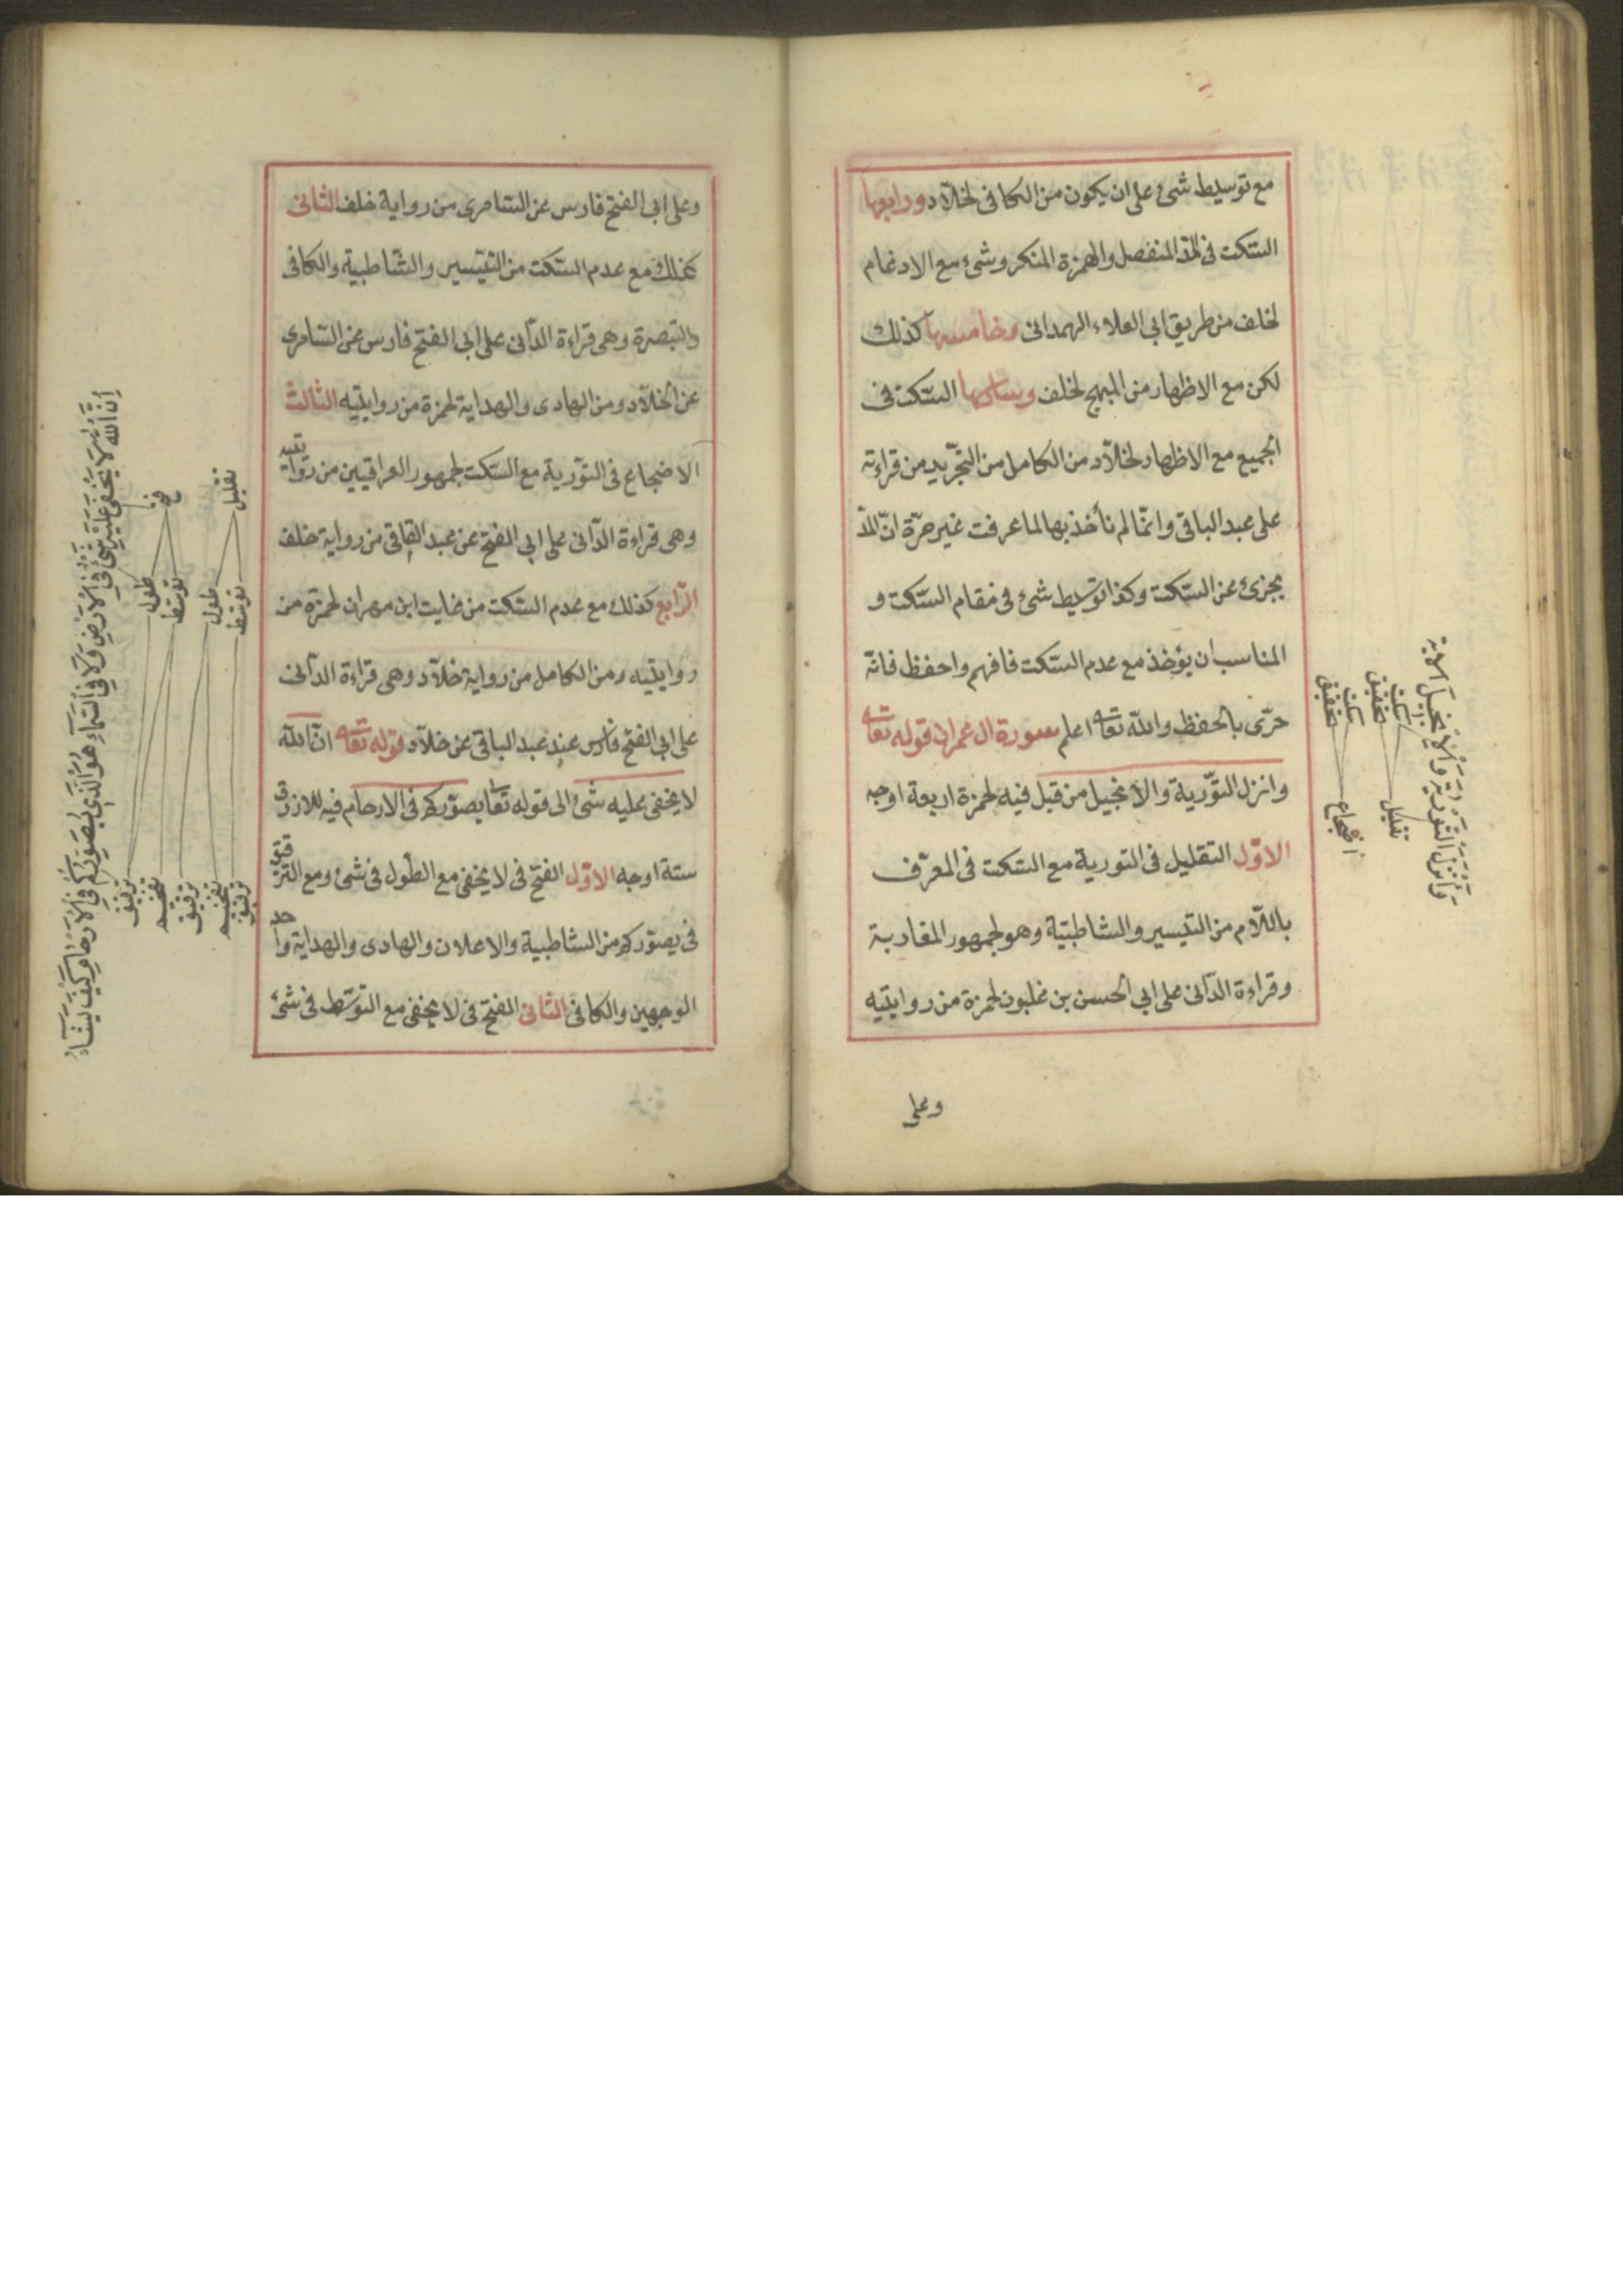 مع توسيط شئ على ان يكون من الكافى لخلاد ورابعها
السكت فى المد المنفصل والهمزة المنكر وشئ مع الادغام
لخلف من طريق ابى العلاء الهمدانى وخامسها كذلك
لكن مع الاظهار من المبهج لخلف وسادسها السكت فى
الجميع مع الاظهار لخلاد من الكامل من التجريد من قراءته
على عبد الباقى وانّما لم نأخذ بها لما عرفت غير مرّة انّ المدّ
يجزئ عن السكت وكذا توسيط شئ فى مقام السكت و
المناسب ان يؤخذ مع عدم السكت فافهم واحفظ فانّه
حرّى بالحفظ والله تعا اعلم سورة ال عمران قوله تعا
وانزل التوّرية والانجيل من قبل فيه لحمزة اربعة اوجه
الاوّل التقليل فى التورية مع السكت فى المعرّف
باللاّم من التيسير والشاطبيّة وهو لجمهور المغاربة
وقراءة الدّانى على ابى الحسن بن غلبون لحمزة من روايتيه
وعلى
وَأَنْزَلَ التَّوْرَيةَ وَالْاِنْجِيلَ الاية
سكت
تحقيق
سكت
تحقيق
تقليل
اضجاع
وعلى ابى الفتح فارس عن السّامرى من رواية خلف الثانى
كذلك مع عدم السكت من التيسير والشّاطبية والكافى
والتبصرة وهى قراءة الدّانى على ابى الفتح فارس عن السّامرى
عن الخلاّد ومن الهادى والهداية لحمزة من روايتيه الثالث
الاضجاع فى التوّرية مع السكت لجمهور العراقيين من روايتيه
وهى قراءة الدّانى على ابى الفتح عن عبد الباقى من رواية خلف
الرّابع كذلك مع عدم السكت من غايت ابن مهران لحمزة من
روايتيه ومن الكامل من رواية خلاّد وهى قراءة الدّانى
على ابى الفتح فارس عند عبد الباقى عن خلاّد قوله تعا انّ الله
لا يخفى عليه شئ الى قوله تعا يصوّركم فى الارحام فيه للازرق
ستة اوجه الاوّل الفتح فى لا يخفى مع الطّول فى شئ ومع الترقيق
فى يصوّركم من الشاطبية والاعلان والهادى والهداية واحد
الوجهين والكافى الثانى الفتح فى لا يخفى مع التوسّط فى شئ
تقليل
فتح
توسّط
طول
توسّط
طول
ترقيق
تفخيم
ترقيق
تفخيم
ترقيق
إِنَّ اللهَ لَا يَخْفَى عَلَيْهِ شَئٌ فِي الْاَرْضِ وَلَا فِي السَّمَاءِ هُوَ الَّذِي يُصَوِّرُكُمْ فِي الْاَرْحَامِ كَيْفَ يَشَاءُ